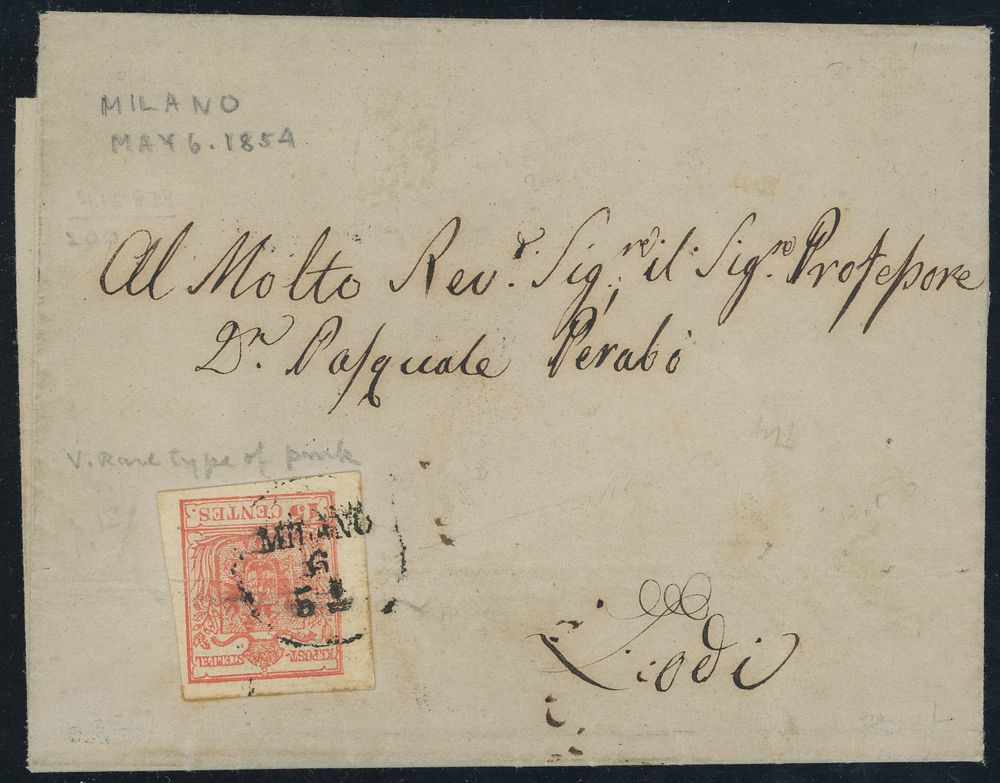 MILANO
MAY 6. 1854
200
Al Molto Rev.d Sig.re il Sig.re Professore
Dn. Pasquale Perabò
V. Rare type of pmk
15 CENTES.
MILANO
6
KKPOST-
STEMPEL
Lodi